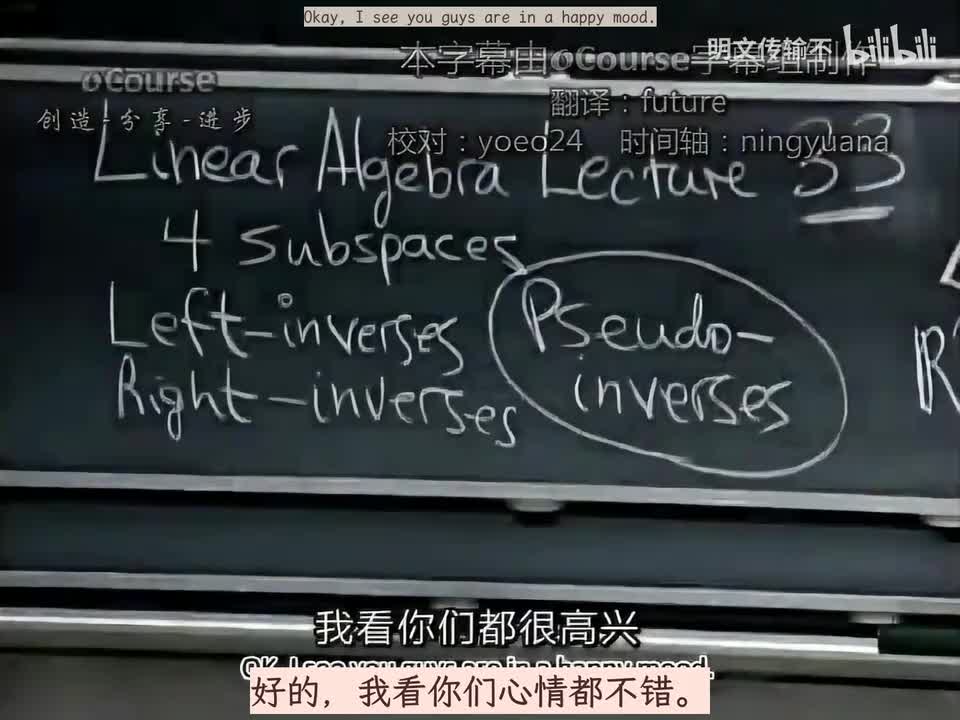 Okay, I see you guys are in a happy mood.
明文传输不 bilibili
本字幕由oCourse字幕组制作
oCourse
创造-分享-进步
翻译：future
校对：yoeo24 时间轴：ningyuana
Linear Algebra Lecture 33
4 subspaces
Left-inverses
Right-inverses
Pseudo-
inverses
R
我看你们都很高兴
OK, I see you guys are in a happy mood.
好的，我看你们心情都不错。